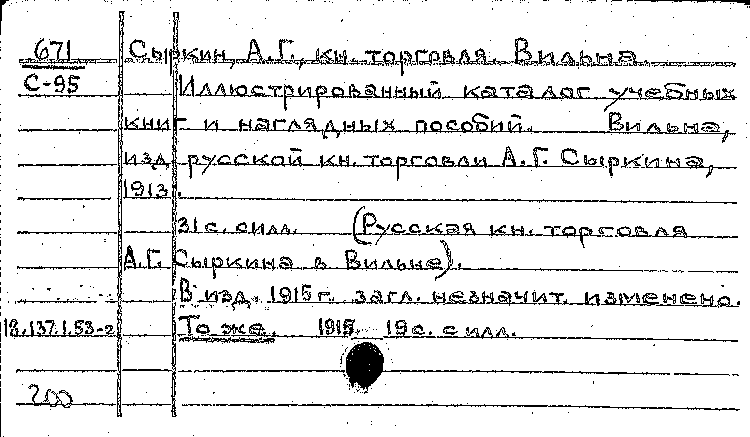 671 Сыркин, А.Г., кн. торговля. Вильна.
С-95 Иллюстрированный каталог учебных
книг и наглядных пособий. Вильна,
изд. русской кн. торговли А.Г. Сыркина,
1913.
31 с. с илл. (Русская кн. торговля
А.Г. Сыркина в Вильне).
В изд. 1915 г. загл. незначит. изменено.
18.137.1.53-2 То же. 1915. 19 с. с илл.
200